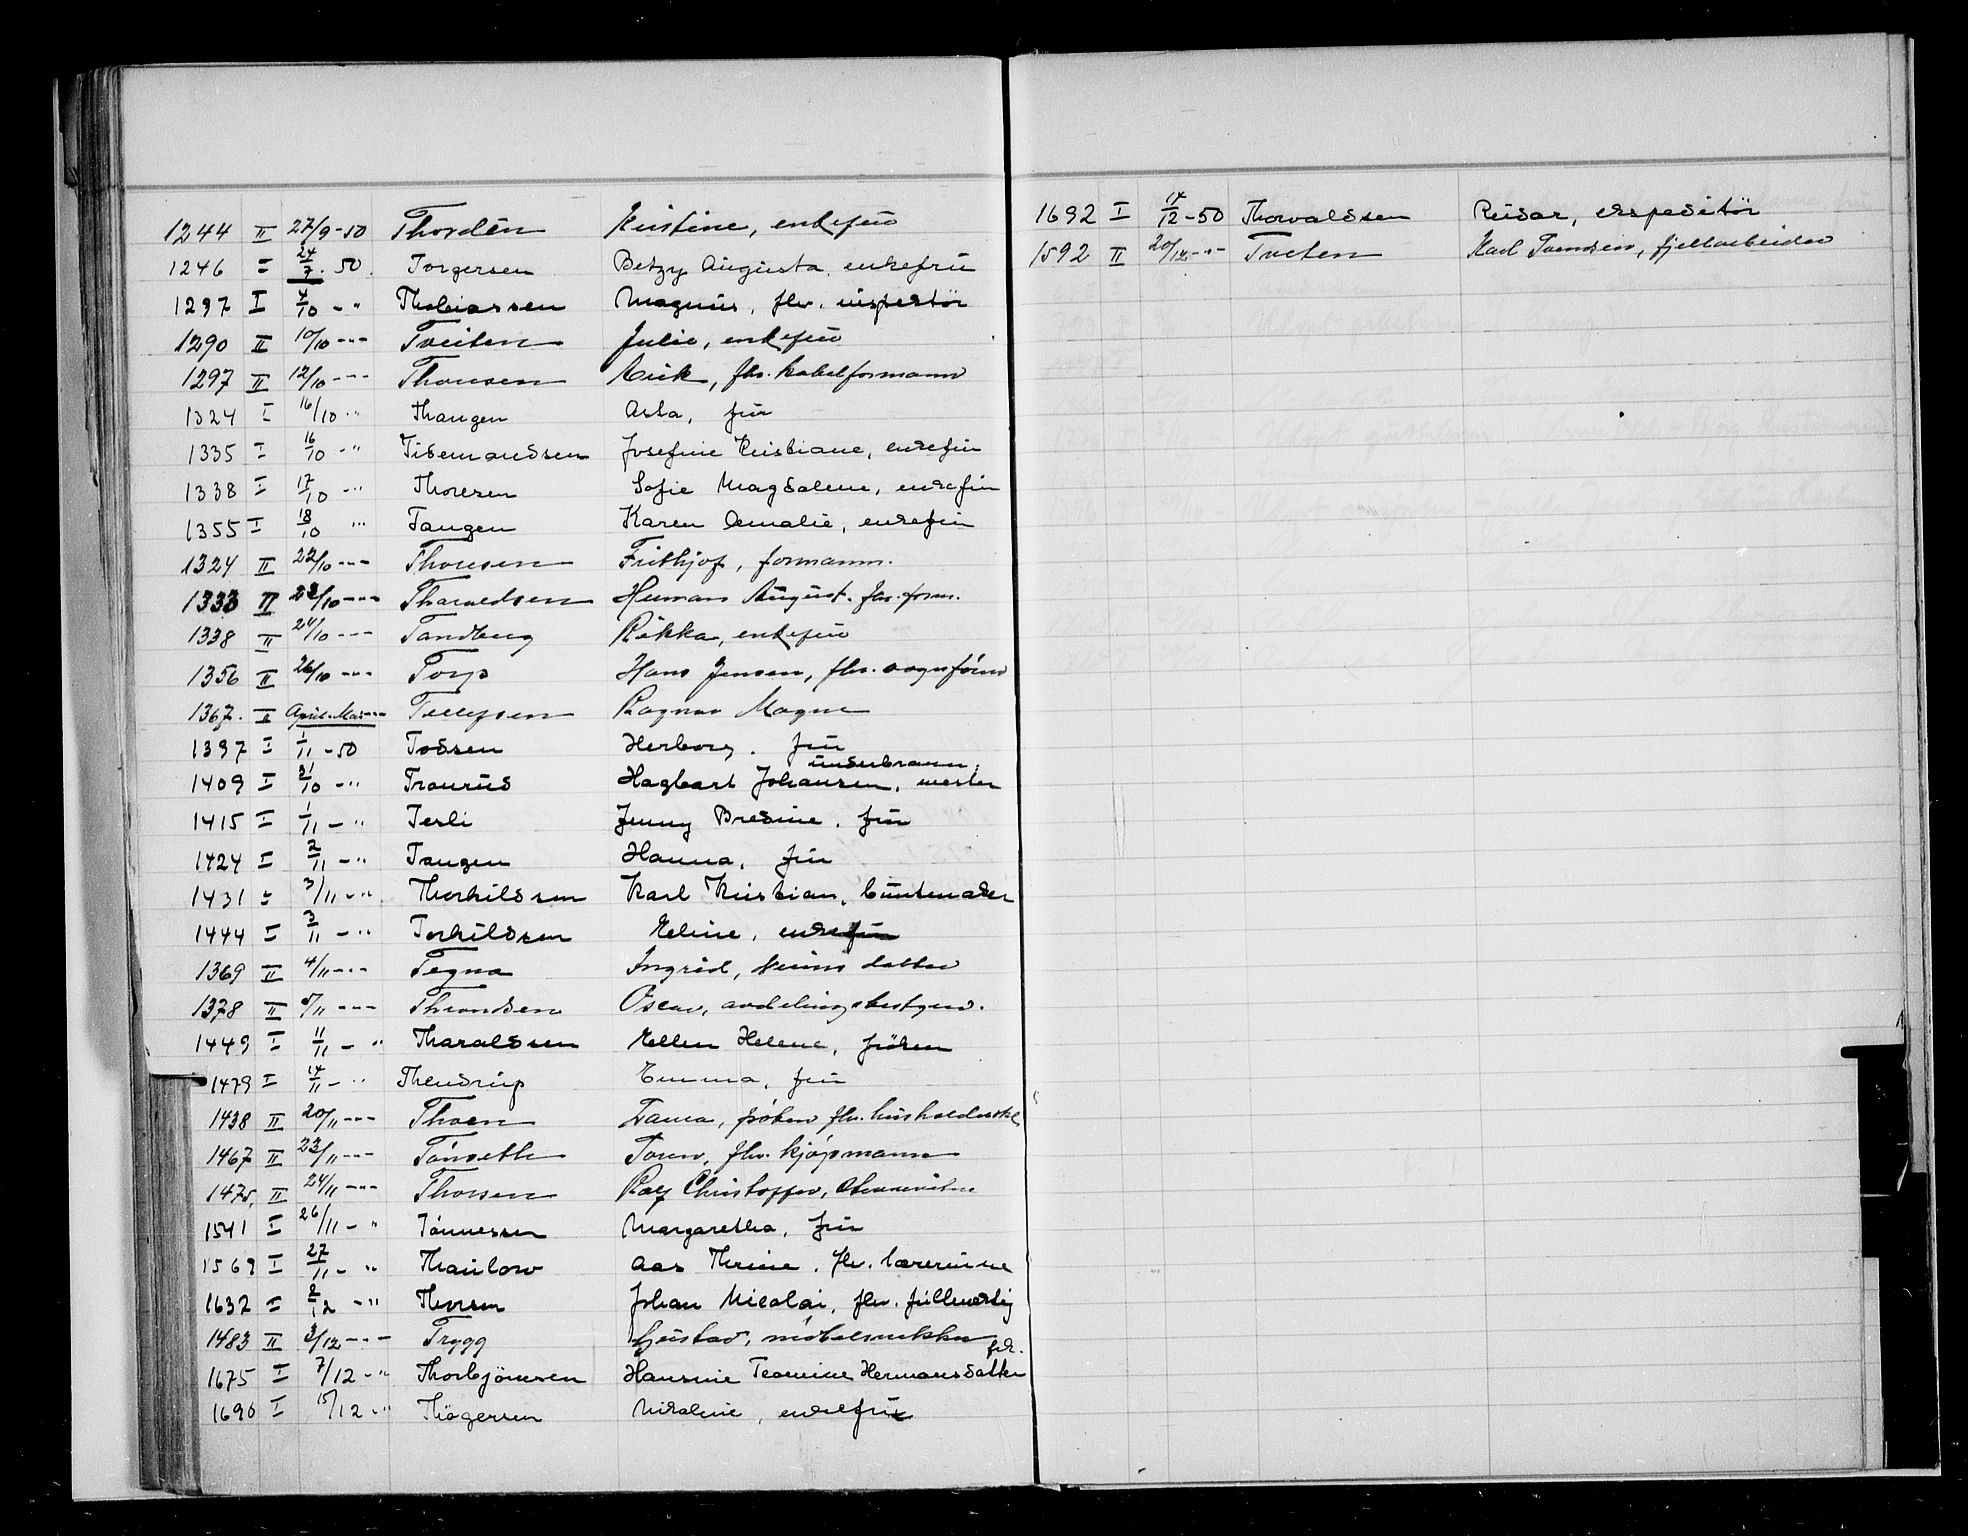 1244 II 27/9-50 Thordén Kristine, enkefru
1246 I 24/7. 50. Torgersen Betzy Augusta, enkefru
1297 I 4/10 - " Thobiassen Magnus, fhv. inspektör
1290 II 10/10 -"- Tveiten Julie, enkefru
1297 II 12/10 -"- Thonsen Erik, fhv. kabelformann
1324 I 16/10 " Thaugen Asta, fru
1335 I 16/10 -" Tidemandsen Josefine Kristiane, enkefru
1338 I 17/10 -" Thoresen Sofie Magdalene, enkefru
1355 I 18/10 " Tangen Karen Amalie, enkefru
1324 II 22/10 -"- Thoresen Frithjof, formann.
1333 II 23/10 -"- Tharaldsen Herman August. fhv. form.
1338 II 24/10 -"- Tandberg Rikka, enkefru
1356 II 26/10 -"- Torp Hans Jensen, fhv. vognförer
1367. II April-Mai -"- Tellefsen Ragnar Magne
1397 I 1/11 -50 Todsen Herborg. fru
underbrann.
1409 I 31/10 -" Traurud Hagbart Johansen, mester
1415 I 1/11 - " Terli Jenny Bredine. fru
1424 I 2/11 - " Tangen Hanna, fru
1431 I 3/11 - " Thorkildsen Karl Kristian, buntmaker
1444 I 3/11 - " Torkildsen Eline, enkefru
1369 II 4/11 -"- Tegna Ingrid, datter
1378 II /11 -"- Throndsen Oscar, avdelingsbestyrer.
1449 I 11/11 - " Tharaldsen Ellen Helene, fröken
1479 I 14/11 - " Thendrup Emma, fru
1438 II 20/11 -"- Thoen fröken fhv. husholderske
1467 II 23/11 -"- Tönseth Toren, fhv. kjøpmann
1475, II 24/11 -"- Thorsen Rolf Christoffer,
1541 I 26/11 - " Tönnessen Margaretha, fru
1569 I 27/11 - " Thaulow Aas Thrine, fhv. lærerinne
1632 I 2/12 - " Thorsen Johan Nicolai, fhv. fullmektig
1483 II 3/12 -"- Trygg Gustav, möbelsnekker
frk.
1675 I 7/12 - " Thorbjörnsen Hansine Teomine Hermansdatter
1690 I 15/12 - " Thögersen Nikoline, enkefru
1692 I 14/12 -50 Thorvaldsen Reidar, ekspeditör
1592 II 20/12 -"- Tveten Karl Svendsen, fjellarbeider